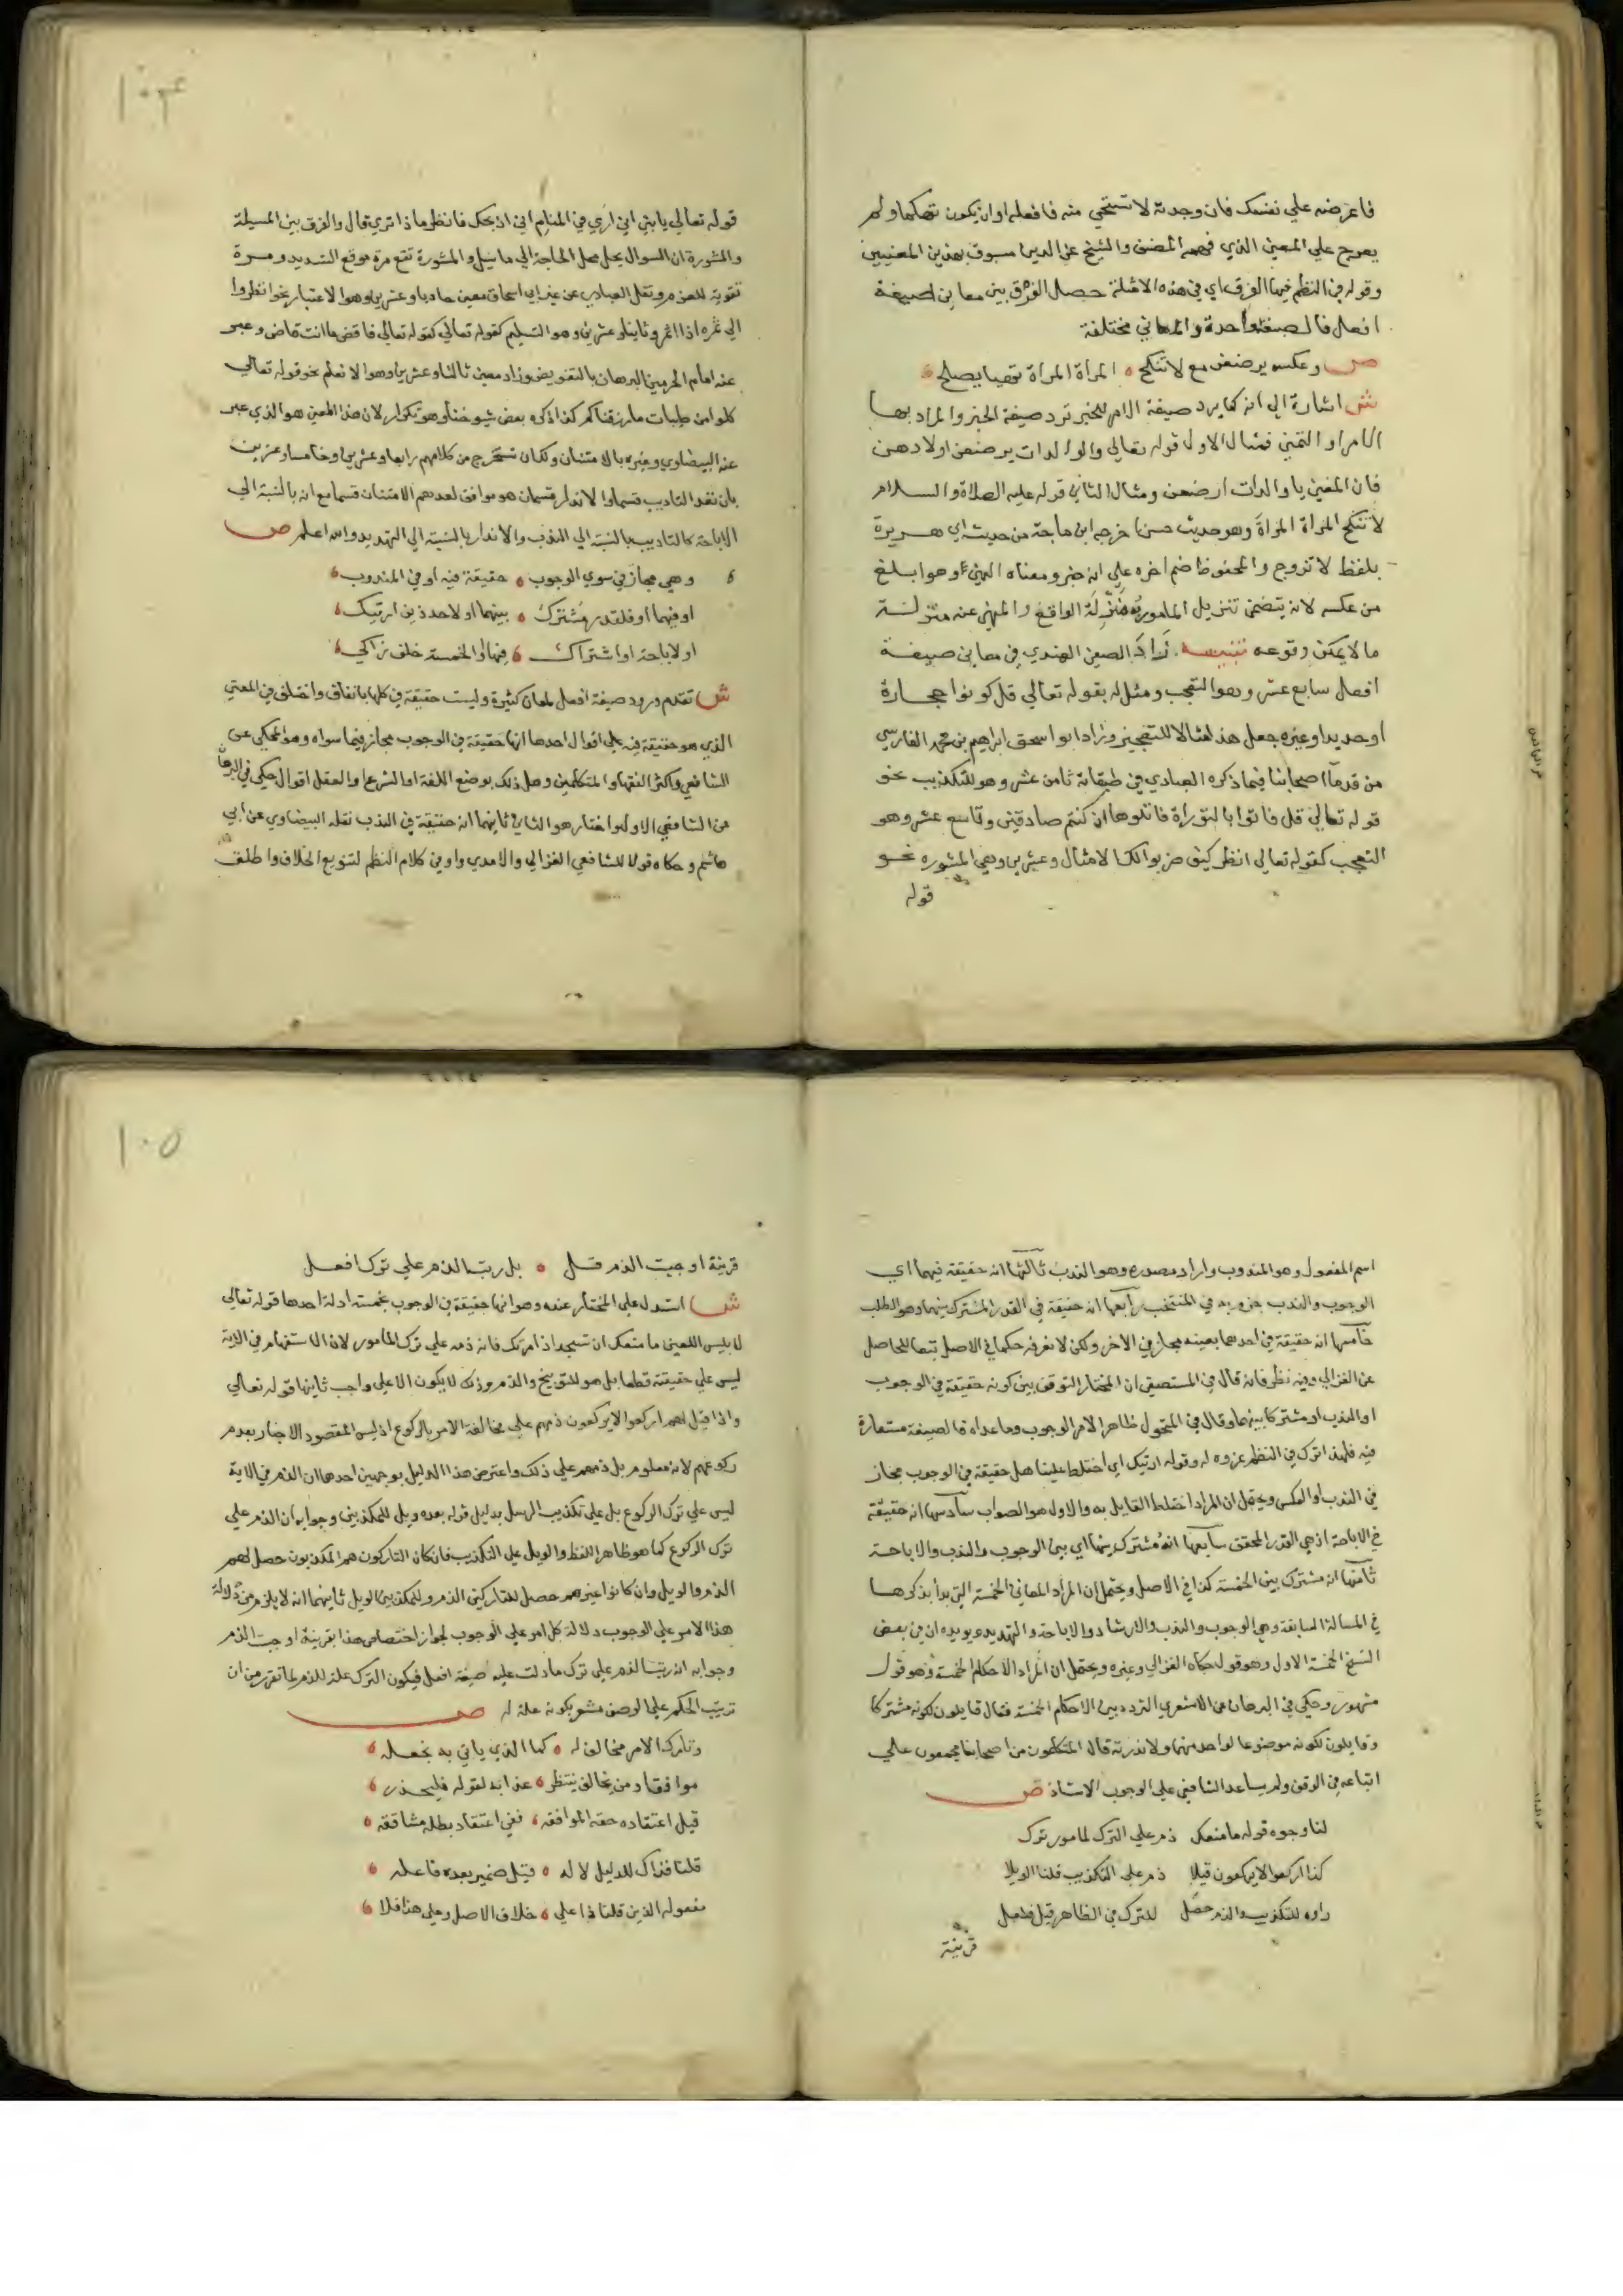 فاعرضه علي نفسك فان وجدته لا تستحي منه فافعله او ان يكون تهكما ولم
يعرج علي المعني الذي فهمه المصنف والشيخ عز الدين مسبوق بهذين المعنيين
وقوله في النظم فيها الفرق اي في هذه الامثلة حصل الفرق بين معاني صيغة
افعل فالصيغة واحدة والمعاني مختلفة
ص وعكسه يرضعن مع لا تنكح المراة المراة نهيا يصلح
ش اشارة الي انه كما يرد صيغة الامر للخبر ترد صيغة الخبر والمراد بها
الامر او التمني فمثال الاول قوله تعالي والوالدات يرضعن اولادهن
فان المعني يا والدات ارضعن ومثال الثاني قوله عليه الصلاة والسلام
لا تنكح المراة المراة وهو حديث حسن خرجه ابن ماجة من حديث ابي هريرة
بلفظ لا تزوج والمحفوظ ضم اخره علي انه خبر ومعناه النهي وهو ابلغ
من عكسه لانه يتضمن تنزيل المامور به منزلة الواقع والمنهي عنه منزلة
ما لا يمكن وقوعه تنبيه زاد الصفي الهندي في معاني صيغة
افعل سابع عشر وهو التعجب ومثل له بقوله تعالي قل كونوا حجارة
او حديدا وغيره جعل هذا مثالا للتعجيز وزاد ابو اسحق ابراهيم بن محمد الفارسي
من قدماء اصحابنا فيما ذكره العبادي في طبقاته ثامن عشر وهو للتكذيب نحو
قوله تعالي قل فاتوا بالتوراة فاتلوها ان كنتم صادقين وتاسع عشر وهو
التعجب كقوله تعالي انظر كيف ضربوا لك الامثال وعشرين وهي المشوره نحو
قوله
١٠٤
قوله تعالي يا بني اني اري في المنام اني اذبحك فانظر ماذا تري قال والفرق بين المسيلة
والمشورة ان السوال يحل محل الحاجة الي ما سيل والمشورة تقع مرة موقع التسديد ومرة
تقوية للعزم ونقل العبادي عن غير ابي اسحاق معني حاديا وعشرين وهو الاعتبار نحو انظروا
الي ثمره اذا اثمر وثانيا وعشرين وهو التسليم كقوله تعالي كقوله تعالي فاقض ما انت قاض وعبر
عنه امام الحرمين البرهان بالتفويض وزاد معني ثالثا وعشرين وهو الانعام نحو قوله تعالي
كلوا من طيبات ما رزقناكم كذا ذكره بعض شيوخنا وهو تكرار لان هذا المعني هو الذي عبر
عنه البيضاوي وغيره بالامتنان ولكان تستخرج من كلامهم رابعا وعشرين وخامسا وعشرين
بان تعد التاديب قسما والانذار قسمان هو موافق لعدهم الامتنان قسما مع انه بالنسبة الي
الاباحة كالتاديب بالنسبة الي الندب والانذار بالنسبة الي التهديد والله اعلم ص
وهي مجاز في سوي الوجوب حقيقة فيه او في المندوب
او فيهما او فلقدر مشترك بينهما او لاحد ذين ارتبك
او لاباحة او اشتراك فيها او الخمسة خلف زاكي
ش تقدم ورود صيغة افعل لمعان كثيرة وليست حقيقة في كلها باتفاق واختلف في المعني
الذي هو حقيقة فيه علي اقوال احدها انها حقيقة في الوجوب مجاز فيما سواه وهو المحكي عن
الشافعي واكثر الفقهاء والمتكلمين وهل ذلك بوضع اللغة او الشرع او العقل اقوال حكي في البرهان
عن الشافعي الاول واختار هو الثاني ثانيها انه حقيقة في الندب نقله البيضاوي عن ابي
هاشم وحكاه قولا للشافعي الغزالي والامدي واو في كلام النظم لتنويع الخلاف واطلق
اسم المفعول وهو المندوب واراد مصدره وهو الندب ثالثها انه حقيقة فيهما اي
الوجوب والندب جزم به في المنتخب رابعها انه حقيقة في القدر المشترك بينهما وهو الطلب
خامسها انه حقيقة في احدهما بعينه مجاز في الاخر ولكن لا نعرفه حكما في الاصل تبعا للحاصل
عن الغزالي وفيه نظر فانه قال في المستصفي ان المختار التوقف بين كونه حقيقة في الوجوب
او الندب او مشتركا بينهما وقال في المنخول ظاهر الامر الوجوب وما عداه فالصيغة مستعارة
فيه فلهذا ترك في النظم عزوه له وقوله ارتبك اي اختلط علينا هل حقيقة في الوجوب مجاز
في الندب او العكس ويحتمل ان المراد اختلط القايل به والاول هو الصواب سادسها انه حقيقة
في الاباحة اذ هي القدر المحقق سابعها انه مشترك بينها اي بين الوجوب والندب والاباحة
ثامنها انه مشترك بين الخمسة كذا في الاصل ويحتمل ان المراد المعاني الخمسة التي بدا بذكرها
في المسالة السابقة وهي الوجوب والندب والارشاد والاباحة والتهديد ويويده ان في بعض
النسخ الخمسة الاول وهو قول حكاه الغزالي وغيره ويحتمل ان المراد الاحكام الخمسة وهو قول
مشهور وحكي في البرهان عن الاشعري التردد بين الاحكام الخمسة فقال قايلون لكونه مشتركا
وقايلون لكونه موضوعا لواحد منها ولا ندريه قال المتكلمون من اصحابنا مجمعون علي
اتباعه في الوقف ولم يساعد الشافعي علي الوجوب الا ستاذ ص
لنا وجوه قوله ما منعك ذم علي الترك لمامور ترك
كذا اركعوا لا يركعون قيلا ذم علي التكذيب قلنا الويلا
راوه للتكذيب والذم حصل للترك في الظاهر قيل فلعل
قرينة
١٠٥
قرينة اوجبت الذم قل بل رتب الذم علي ترك افعل
ش استدل علي المختار عنده وهو انها حقيقة في الوجوب بخمسة ادلة احدها قوله تعالي
لابليس اللعين ما منعك ان تسجد اذ امرتك فانه ذمه علي ترك المامور لان الاستفهام في الاية
ليس علي حقيقته قطعا بل هو للتوبيخ والذم وذلك لا يكون الا علي واجب ثانيها قوله تعالي
واذا قيل لهم اركعوا لا يركعون ذمهم علي مخالفة الامر بالركوع اذ ليس المقصود الاخبار بعدم
ركوعهم لانه معلوم بل ذمهم علي ذلك واعترض هذا الدليل بوجهين احدهما ان الذم في الاية
ليس علي ترك الركوع بل علي تكذيب الرسل بدليل قوله بعده ويل للمكذبين وجوابه ان الذم علي
ترك الركوع كما هو ظاهر اللفظ والويل علي التكذيب فان كان التاركون هم المكذبون حصل لهم
الذم والويل وان كانوا غيرهم حصل للتاركين الذم وللمكذبين الويل ثانيهما انه لا يلزم من دلالة
هذا الامر علي الوجوب دلالة كل امر علي الوجوب لجواز اختصاص هذا بقرينة اوجبت الذم
وجوابه انه رتب الذم علي ترك ما دلت عليه صيغة افعل فيكون الترك علة للذم لما تقرر من ان
ترتيب الحكم علي الوصف مشعر بكونه علة له ص
وتارك الامر مخالف له كما الذي ياتي به بجعله
موافقا ومن يخالف ينتظر عذابه لقوله فليحذر
قيل اعتقاده حقه الموافقه ففي اعتقاد بطله مشاققه
قلنا فذاك للدليل لا له وقيل ضمير بعده فاعله
مفعوله الذين قلنا ذا علي خلاف الاصل وعلي هذا فلا